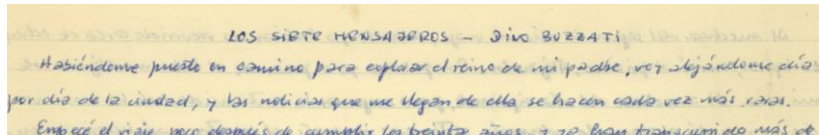 LOS SIETE MENSAJEROS - DINO BUZZATI
Habiéndome puesto en camino para explorar el reino de mi padre, voy alejándome día
por día de la ciudad, y las noticias que me llegan de ella se hacen cada vez más raras.
Empecé el viaje poco después de cumplir los treinta años y ya han transcurrido más de